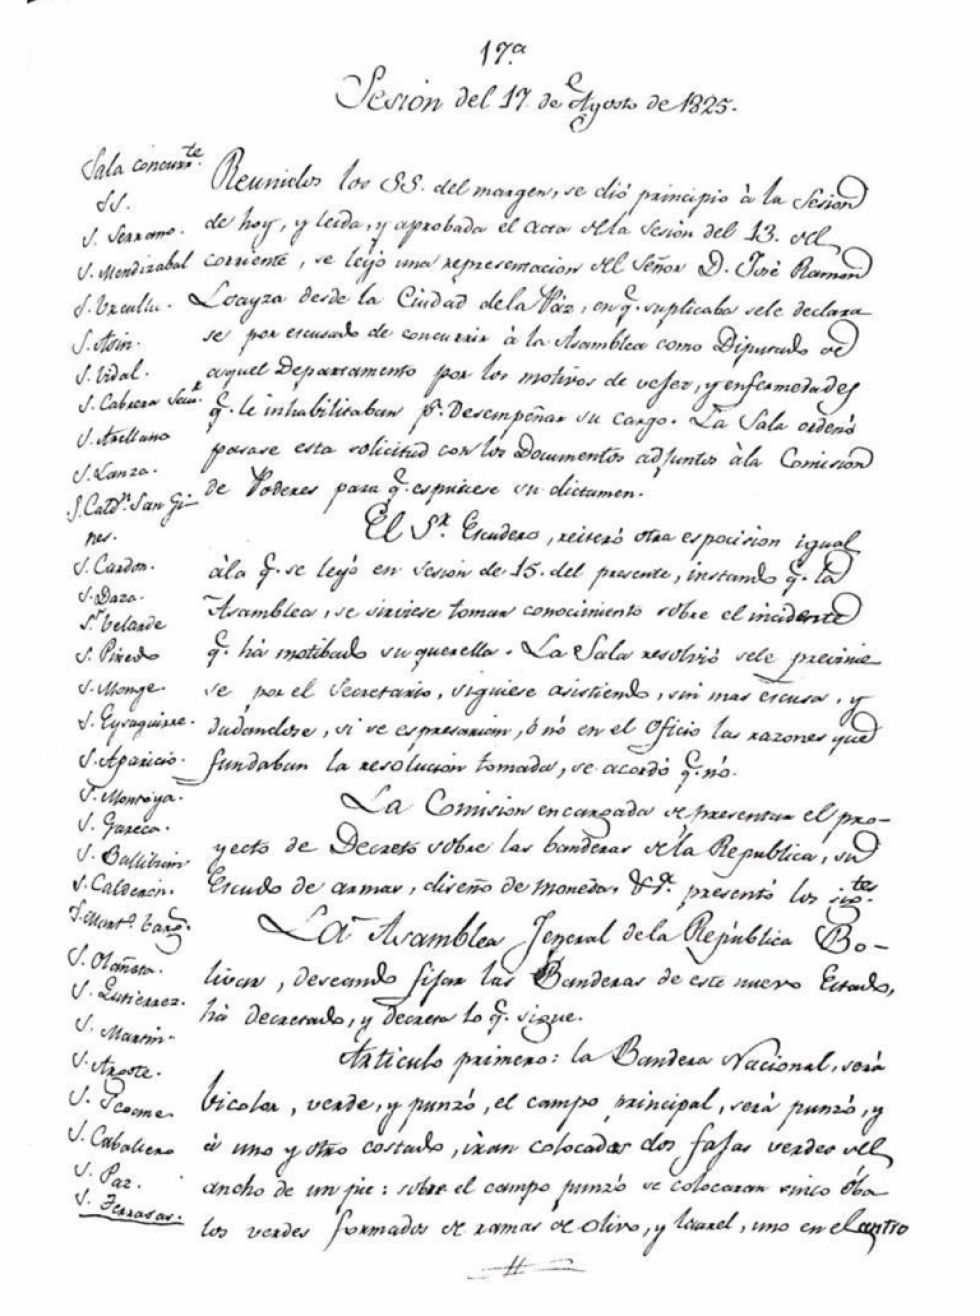 17.ª
Sesion del 17. de Agosto de 1825.
Sala concurr.te
SS.
S. Serrano.
S. Mendizabal
S. Urcullu.
S. Asin.
S. Vidal.
S. Cabrera Secr.
S. Arellano
S. Lanza.
S. Catd.n San Gi-
nes.
S. Cardon.
S. Daza.
S.r Velarde
S. Pinedo
S. Monge.
S. Eysaguirre.
S. Aparicio.
S. Montoya.
S. Gareca.
S. Ballibian
S. Calderon.
S. Mart.
S. Olañeta.
S. Gutierrez.
S. Martin.
S. Argote.
S.
S. Caballero
S. Paz.
S. Terrasas.
Reunidos los SS. del margen, se dió principio à la Sesion
de hoy, y leida, y aprobada el acta dela Sesion del 13. del
corriente, se leyó una representacion del Señor D. José Ramon
Loayza desde la Ciudad dela Páz, en q. suplicaba sele declara
se por escusado de concurrir à la Asamblea como Diputado de
aquel Departamento por los motivos de vejez, y enfermedades
q. le inhabilitaban p.ª Desempeñar su cargo. La Sala ordenó
pasase esta solicitud con los Documentos adjuntos àla Comision
de Poderes para q. espusiese su dictamen.
El S.r Escudero, reiteró otra esposicion igual
àla q. se leyó en Sesion de 15. del presente, instando q. la
Asamblea, se sirviese tomar conocimiento sobre el incidente
q. há motibado su querella. La Sala resolvió sele previnie
se por el Secretario, siguiese asistiendo, sin mas escusa, y
dudandose, si se espresarian, ó nó en el Oficio las razones que
fundaban la resolucion tomada, se acordó q. nó.
La Comision encargada de presentar el pro-
yecto de Decreto sobre las banderas dela Republica, su
Escudo de armas, diseño de moneda, &.ª presentó los sig.tes
La Asamblea Jeneral dela República Bo-
livar, deseando fijar las Banderas de este nuevo Estado,
há decretado, y decreta lo q. sigue.
Articulo primero: la Bandera Nacional, será
bicolor, verde, y punzó, el campo principal, será punzó, y
à uno y otro costado, irán colocadas dos fajas verdes del
ancho de un pie: sobre el campo punzó se colocaran cinco óba
los verdes formados de ramas de olivo, y laurel, uno en el